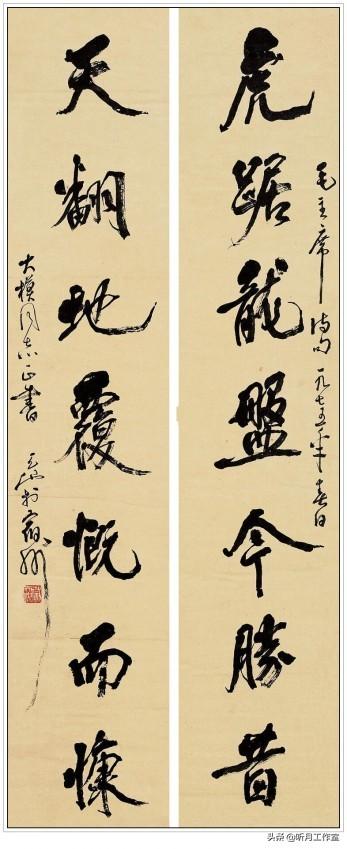 虎踞龍盤今勝昔
毛主席诗句 一九七五年春日
天翻地覆慨而慷
大模同志正書
头条 @听月工作室